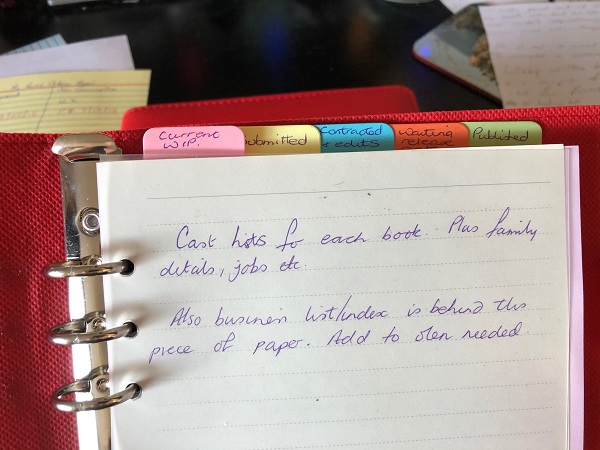 Current
W.I.P.
Submitted
Contracted
+ edits
Waiting
release
Published
Cast lists for each book. Plus family
details, jobs etc.
Also business list/index is behind this
piece of paper. Add to when needed